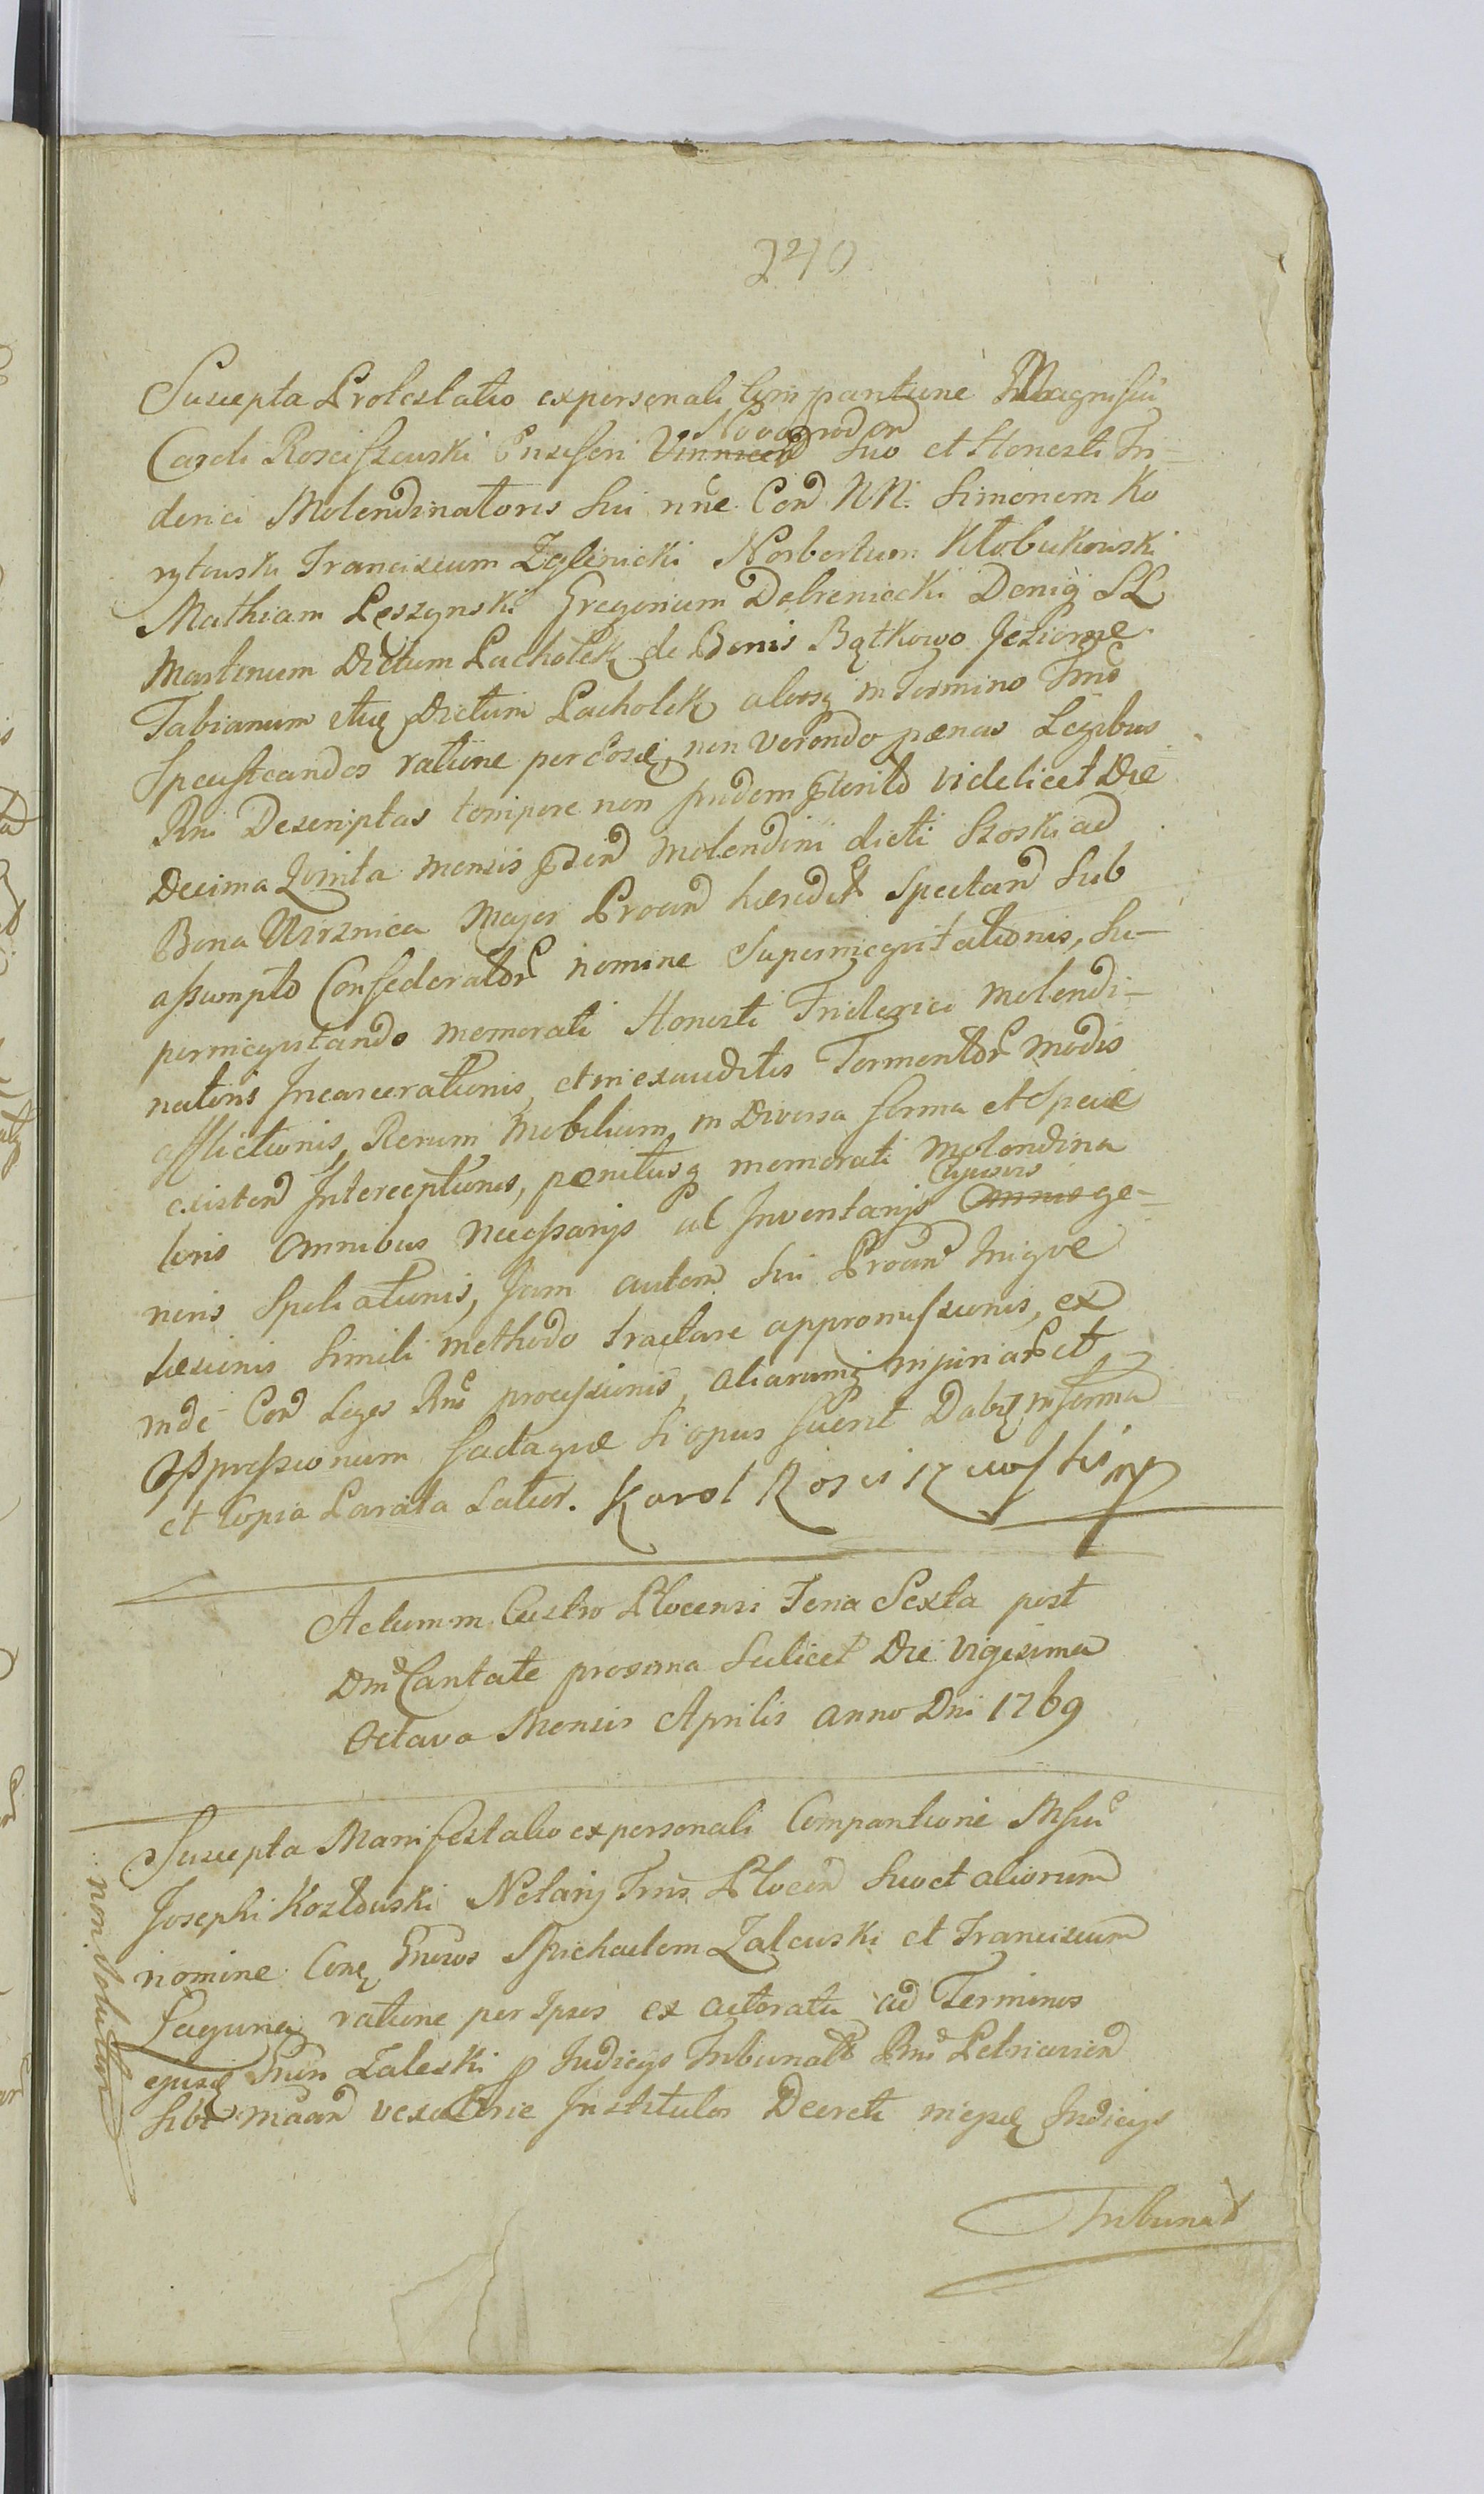 240
Suscepta Protestatio ex personali Comparitione Magnifici
Caroli Rosciszewski Ensiferi Vinnicen Novogroden Suo et Honesti Fri-
derici Molendinatoris Sui nne Con NN. Simonem Ko
rytowski Franciscum Zglinicki Norbertum Kłobukowski
Mathiam Leszynski Gregorium Dobreniecki Deniq SL
Martinum Dictum Pachołek de Bonis Bątkowo Jeziorne
Fabianum etiq Dictum Pachołek aliosq in Termino
Specificandos ratione per eosd non Verendo pœnas Legibus
Rni Descriptas tempore non pridem pterito videlicet Die
Decima Quinta mensis pden Molendini dicti Szoski ad
Bona Mirznica Major Proan hæredit Spectan Sub
assumpto Confœderator nomine Supernieqvitationis, Su-
pernieqvitando memorati Honesti Friderici Molendi-
natoris Incarcerationis, et inexauditis Tormentor modis
afflictionis, Rerum Mobilium in Diversa forma et Specie
existen Interceptionis, pœnitusq memorati Molendina
toris Omnibus Necessarijs ac Inventarijs Omnis Cujusvis ge-
neris Spoliationis, Jam autem Sui Proan Iniqvæ
læsionis Simili methodo tractare appromissionis, ex
inde Con Leges Rni processionis, aliarumq injuriar et
Oppressionum factaque Si opus fuerit Dabiq in forma
et Copia Parata Latius. Karol Rosciszewski mp
Actum in Castro Plocensi Feria Sexta post
Dm Cantate proxima Scilicet Die Vigesima
Octava Mensis Aprilis Anno Dni 1769
Suscepta Manifestatio ex personali Comparitione Mfci
Josephi Kozłowski Notarij Trris Plocen Suo et aliorum
nomine Con Gnrosos Michaelem Zalewski et Franciscum
Łaguna ratione per Ipsos ex actoratu ad Terminos
ejusd Gnrsi Zaleski p Judicijs Tribunal Rni Petricovien
sibi vexatorie Institutos Decreti in ejusd Judicijs
Tribunal
non Solutum